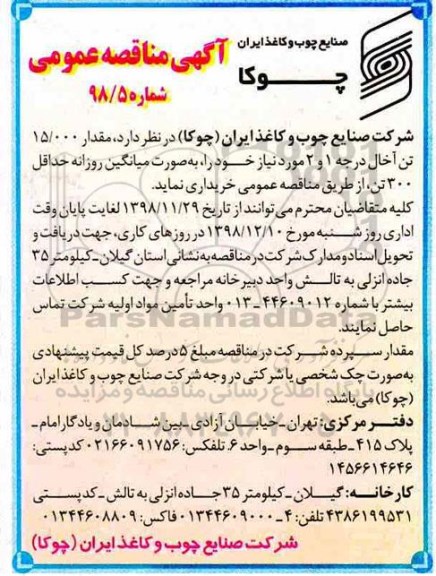 صنایع چوب و کاغذ ایران
چوکا
آگهی مناقصه عمومی
شماره ۹۸/۵
شرکت صنایع چوب و کاغذ ایران (چوکا) در نظر دارد، مقدار ۱۵/۰۰۰
تن آخال درجه ۱ و ۲ مورد نیاز خود را، به‌صورت میانگین روزانه حداقل
۳۰۰ تن، از طریق مناقصه عمومی خریداری نماید.
کلیه متقاضیان محترم می‌توانند از تاریخ ۱۳۹۸/۱۱/۲۹ لغایت پایان وقت
اداری روز شنبه مورخ ۱۳۹۸/۱۲/۱۰ در روزهای کاری، جهت دریافت و
تحویل اسناد و مدارک شرکت در مناقصه به نشانی استان گیلان ـ کیلومتر ۳۵
جاده انزلی به تالش واحد دبیرخانه مراجعه و جهت کسب اطلاعات
بیشتر با شماره ۴۴۶۰۹۰۱۲ ـ ۰۱۳ واحد تأمین مواد اولیه شرکت تماس
حاصل نمایند.
مقدار سپرده شرکت در مناقصه مبلغ ۵ درصد کل قیمت پیشنهادی
به‌صورت چک شخصی یا شرکتی در وجه شرکت صنایع چوب و کاغذ ایران
(چوکا) می‌باشد.
دفتر مرکزی: تهران ـ خیابان آزادی ـ بین شادمان و یادگار امام ـ
پلاک ۴۱۵ ـ طبقه سوم ـ واحد ۶. تلفکس: ۰۲۱۶۶۰۹۱۷۵۶ کدپستی:
۱۴۵۶۶۱۴۶۴۶
کارخانه: گیلان ـ کیلومتر ۳۵ جاده انزلی به تالش ـ کدپستی
۴۳۸۶۱۹۹۵۳۱ تلفن: ۴ ـ ۰۱۳۴۴۶۰۹۰۰۰ فاکس: ۰۱۳۴۴۶۰۸۸۰۹
شرکت صنایع چوب و کاغذ ایران (چوکا)
ParsNamadData
پایگاه اطلاع رسانی مناقصه و مزایده